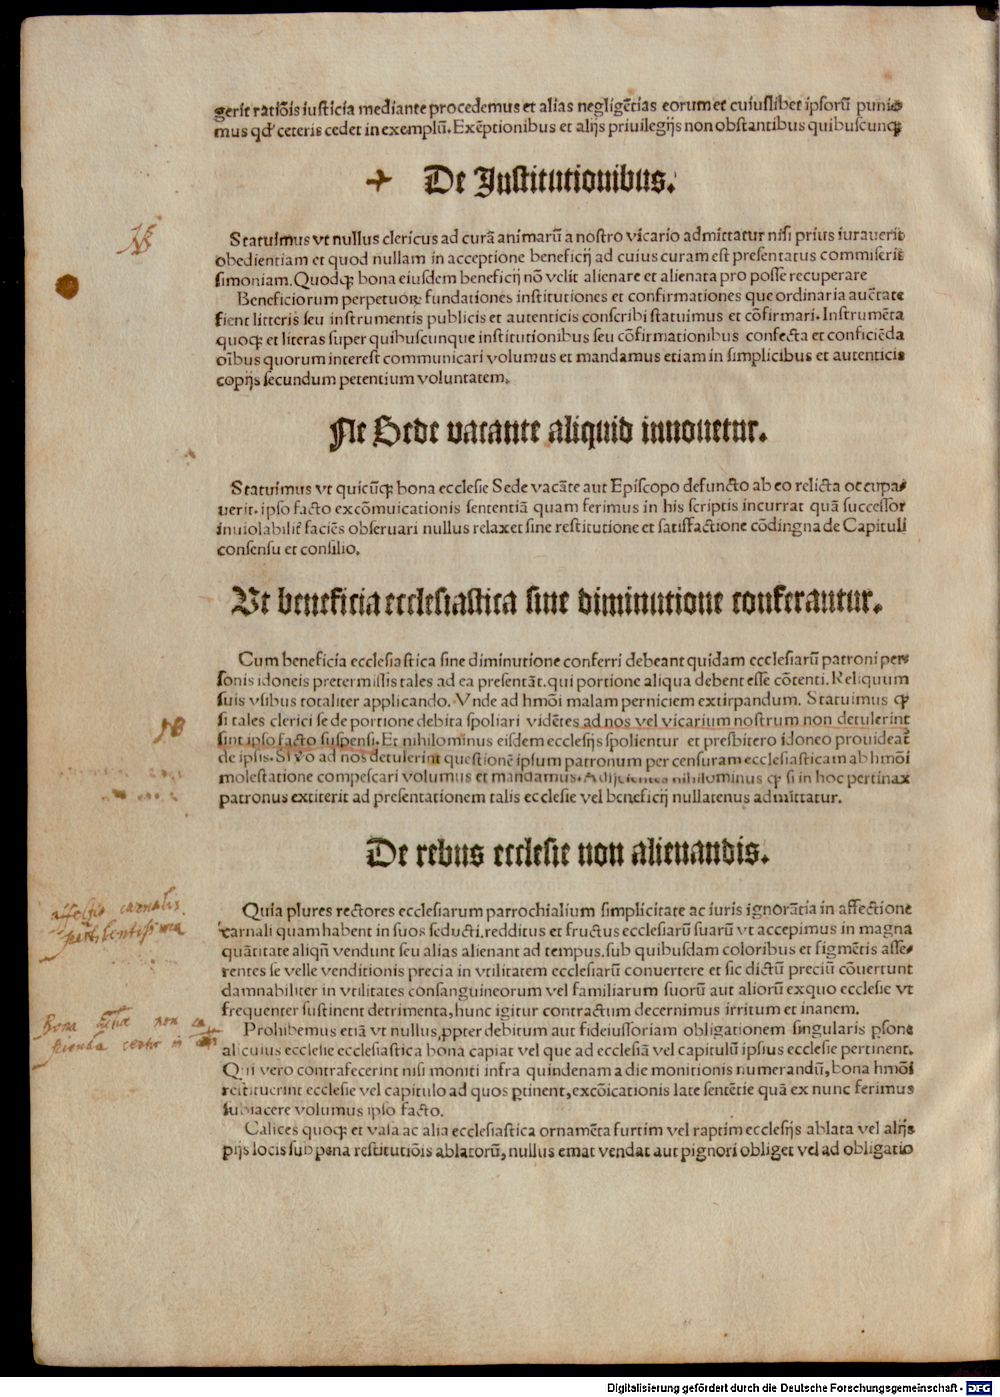 gerit ratiōis iusticia mediante procedemus et alias negligētias eorum et cuiuslibet ipsorū punie
mus qđ ceteris cedet in exemplū. Exēptionibus et alijs priuilegijs non obstantibus quibuscunqꝫ
De Institutionibus.
Statuimus vt nullus clericus ad curā animarū a nostro vicario admittatur nisi prius iurauerit
obedientiam et quod nullam in acceptione beneficij ad cuius curam est presentatus commiserit
simoniam. Quodqꝫ bona eiusdem beneficij nō velit alienare et alienata pro posse recuperare
Beneficiorum perpetuoꝝ fundationes institutiones et confirmationes que ordinaria auctate
fient litteris seu instrumentis publicis et autenticis conscribi statuimus et cōfirmari. Instrumēta
quoqꝫ et literas super quibuscunque institutionibus seu cōfirmationibus confecta et conficiēda
oībus quorum interest communicari volumus et mandamus etiam in simplicibus et autenticis
copijs secundum petentium voluntatem.
Ne Sede vacante aliquid innouetur.
Statuimus vt quicūqꝫ bona ecclesie Sede vacāte aut Episcopo defuncto ab eo relicta occupa⸗
uerit. ipso facto excōmuicationis sententiā quam ferimus in his scriptis incurrat quā successor
inuiolabilit̄ faciēs obseruari nullus relaxet sine restitutione et satisfactione cōdingna de Capituli
consensu et consilio.
Vt beneficia ecclesiastica sine diminutione conferantur.
Cum beneficia ecclesiastica sine diminutione conferri debeant quidam ecclesiarū patroni per⸗
sonis idoneis pretermissis tales ad ea presentāt. qui portione aliqua debent esse cōtenti. Reliquum
suis vsibus totaliter applicando. Vnde ad hmōi malam perniciem extirpandum. Statuimus ꝙ
si tales clerici se de portione debita spoliari vidētes ad nos vel vicarium nostrum non detulerint
sint ipso facto suspensi. Et nihilominus eisdem ecclesijs spolientur et presbitero idoneo prouideat̄
de ipsis. Si v̄o ad nos detulerint questionē ipsum patronum per censuram ecclesiasticam ab hmōi
molestatione compescari volumus et mandamus. Adijcientes nihilominus ꝙ si in hoc pertinax
patronus extiterit ad presentationem talis ecclesie vel beneficij nullatenus admittatur.
De rebus ecclesie non alienandis.
affectio carnalis
pestilentissima
Quia plures rectores ecclesiarum parrochialium simplicitate ac iuris ignorātia in affectione
carnali quam habent in suos seducti. redditus et fructus ecclesiarū suarū vt accepimus in magna
quātitate aliqñ vendunt seu alias alienant ad tempus. sub quibusdam coloribus et figmētis asse⸗
rentes se velle venditionis precia in vtilitatem ecclesiarū conuertere et sic dictū preciū cōuertunt
damnabiliter in vtilitates consanguineorum vel familiarum suorū aut aliorū ex quo ecclesie vt
frequenter sustinent detrimenta, hunc igitur contractum decernimus irritum et inanem.
Bona non ca
pienda
Prohibemus etiā vt nullus ꝓpter debitum aut fideiussoriam obligationem singularis ꝑsone
alicuius ecclesie ecclesiastica bona capiat vel que ad ecclesiā vel capitulū ipsius ecclesie pertinent.
Qui vero contrafecerint nisi moniti infra quindenam a die monitionis numerandū, bona hmōi
restituerint ecclesie vel capitulo ad quos ꝑtinent, excōicationis late sentētie quā ex nunc ferimus
subiacere volumus ipso facto.
Calices quoqꝫ et vasa ac alia ecclesiastica ornamēta furtim vel raptim ecclesijs ablata vel alijs
pijs locis sub pena restitutiōis ablatorū, nullus emat vendat aut pignori obliget vel ad obligatio
Digitalisierung gefördert durch die Deutsche Forschungsgemeinschaft - DFG